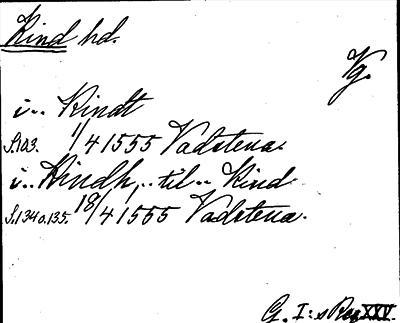 Kind hd.
Vg.
i.. Kindt
S.103. 1/4 1555 Vadstena.
i.. Kindh, .. til .. Kind
S.134 o. 135. 18/4 1555 Vadstena.
G. I:s Reg XXV.